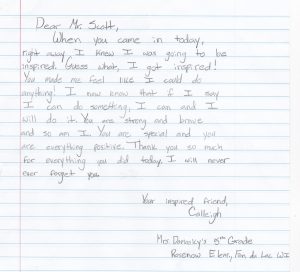 Dear Mr. Scott,
When you came in today,
right away I knew I was going to be
inspired. Guess what, I got inspired!
You made me feel like I could do
anything! I now know that if I say
I can do something, I can and I
will do it. You are strong and brave
and so am I. You are special and you
are everything positive. Thank you so much
for everything you did today. I will never
ever forget you.
Your inspired friend,
Calleigh
Mrs 5th Grade
Rosenow Elem, Fon du Lac WI